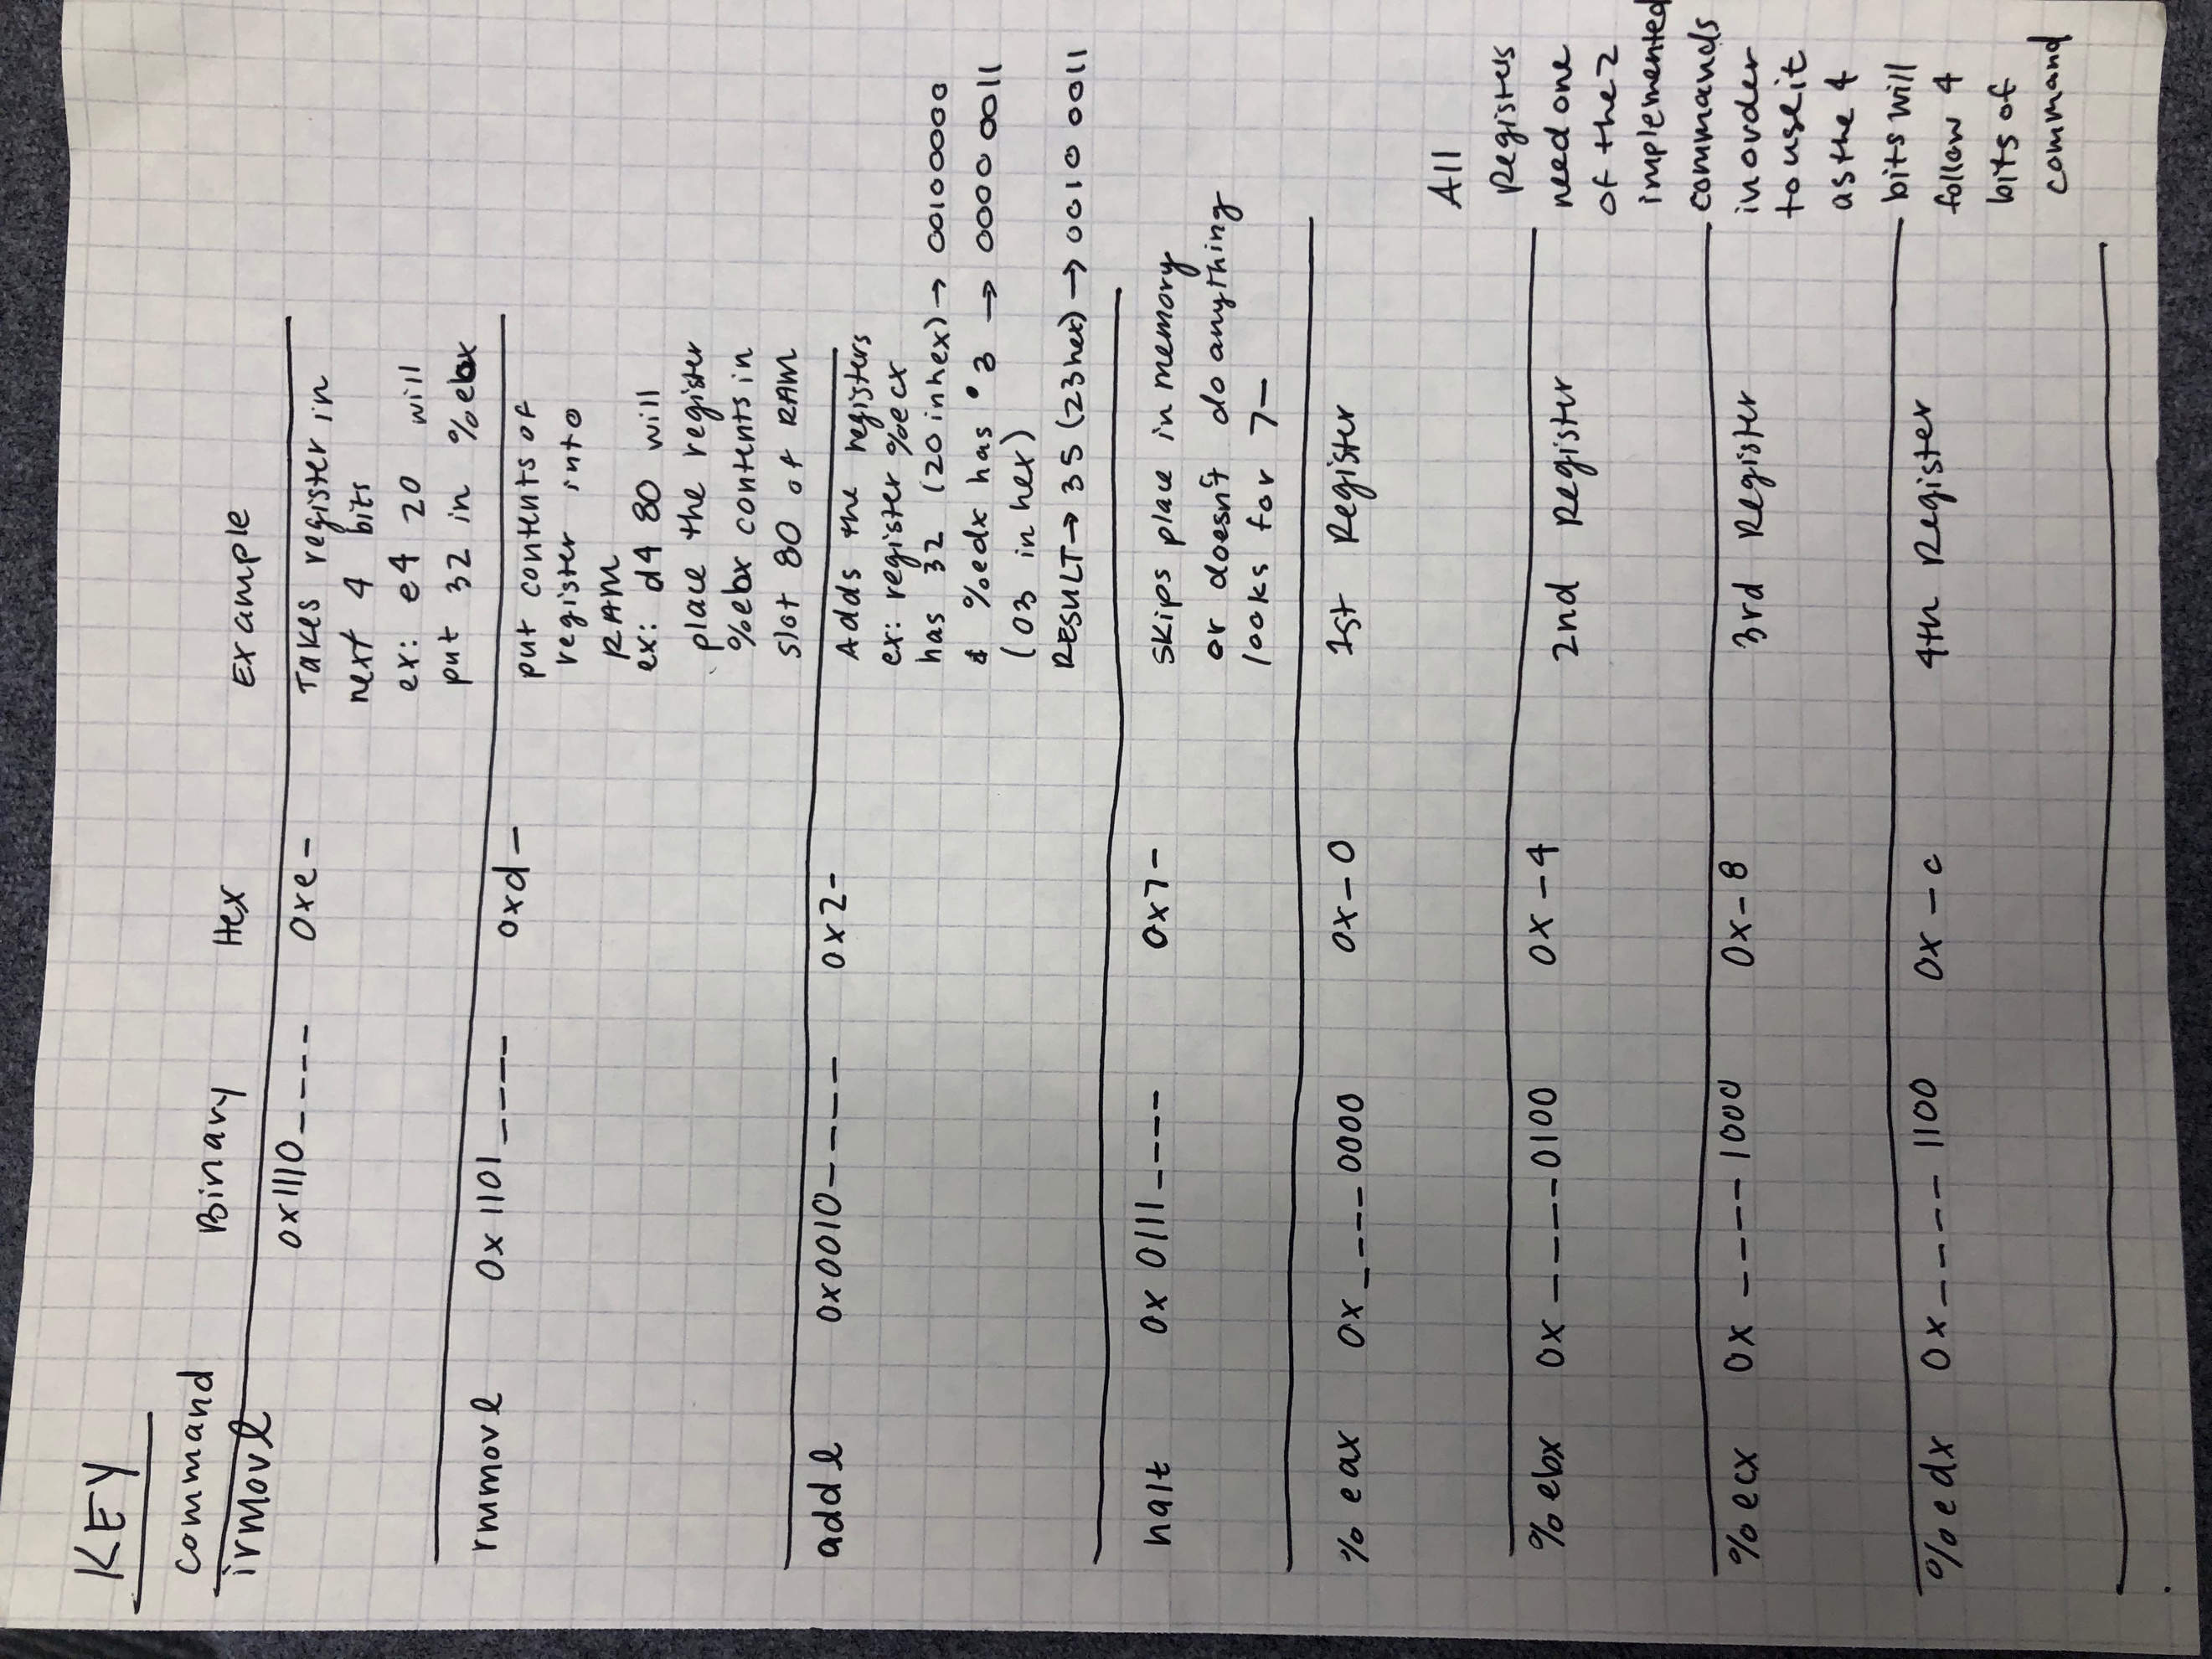 KEY
Command Binary Hex Example
irmovl 0x1110_ _ _ _ 0xe- Takes register in
next 4 bits
ex: e4 20 will
put 32 in %ebx
rmmovl 0x 1101_ _ _ _ 0xd- put contents of
register into
RAM
ex: d4 80 will
place the register
%ebx contents in
slot 80 of RAM
addl 0x0010_ _ _ _ 0x2- Adds the registers
ex: register %ecx
has 32 (20 in hex) → 00100000
& %edx has 3 → 0000 0011
(03 in hex)
RESULT → 35 (23 hex) → 0010 0011
halt 0x 0111_ _ _ _ 0x7- Skips place in memory
or doesn't do anything
looks for 7-
%eax 0x_ _ _ _0000 0x-0 1st Register
%ebx 0x_ _ _ _0100 0x-4 2nd Register
%ecx 0x_ _ _ _1000 0x-8 3rd Register
%edx 0x_ _ _ _1100 0x-c 4th Register
All
Registers
need one
of the 2
implemented
commands
in order
to use it
as the 4
bits will
follow 4
bits of
command